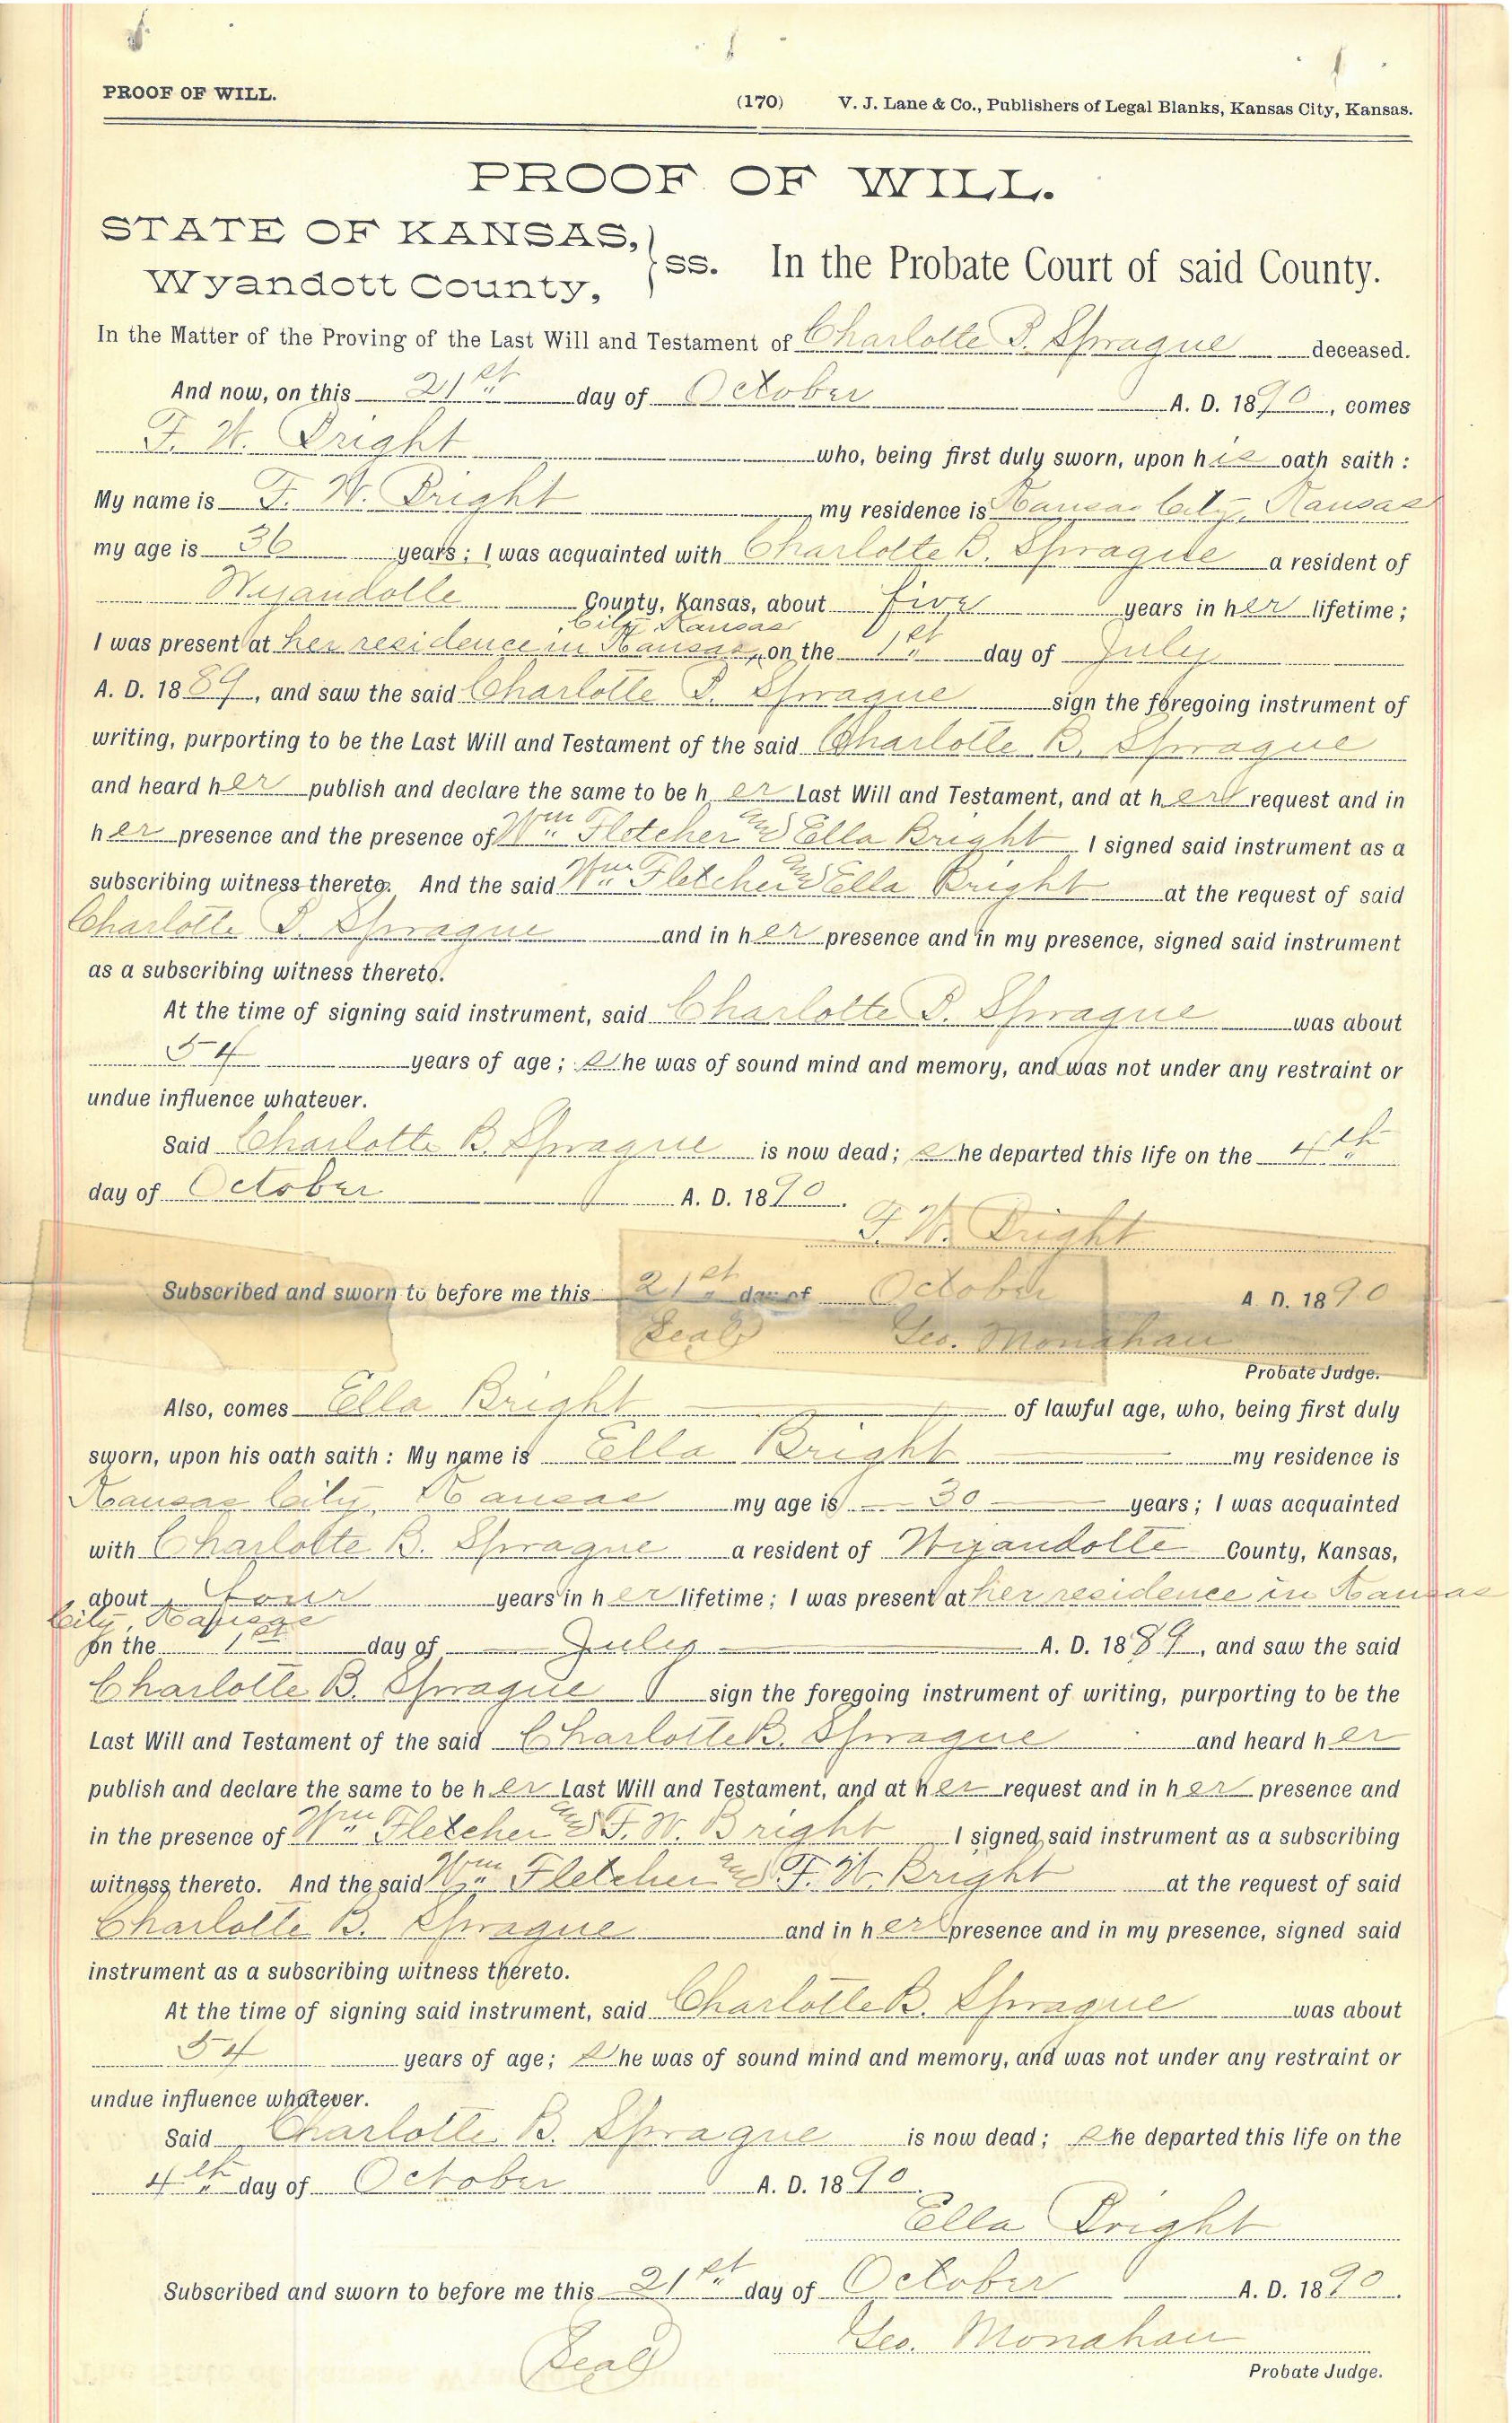 PROOF OF WILL. (170) V. J. Lane & Co., Publishers of Legal Blanks, Kansas City, Kansas.
PROOF OF WILL.
STATE OF KANSAS, } ss. In the Probate Court of said County.
Wyandott County,
In the Matter of the Proving of the Last Will and Testament of Charlotte B. Sprague deceased.
And now, on this 21st day of October A. D. 1890, comes
F. W. Bright who, being first duly sworn, upon his oath saith :
My name is F. W. Bright, my residence is Kansas City, Kansas
my age is 36 years; I was acquainted with Charlotte B. Sprague a resident of
Wyandotte County, Kansas, about five years in her lifetime;
City Kansas
I was present at her residence in Kansas, on the 1st day of July
A. D. 1889, and saw the said Charlotte B. Sprague sign the foregoing instrument of
writing, purporting to be the Last Will and Testament of the said Charlotte B. Sprague
and heard her publish and declare the same to be her Last Will and Testament, and at her request and in
her presence and the presence of Wm Fletcher and Ella Bright I signed said instrument as a
subscribing witness thereto. And the said Wm Fletcher and Ella Bright at the request of said
Charlotte B. Sprague and in her presence and in my presence, signed said instrument
as a subscribing witness thereto.
At the time of signing said instrument, said Charlotte B. Sprague was about
54 years of age; She was of sound mind and memory, and was not under any restraint or
undue influence whatever.
Said Charlotte B. Sprague is now dead; She departed this life on the 4th
day of October A. D. 1890.
F. W. Bright
Subscribed and sworn to before me this 21st day of October A. D. 1890
Seal Geo. Monahan
Probate Judge.
Also, comes Ella Bright of lawful age, who, being first duly
sworn, upon his oath saith : My name is Ella Bright my residence is
Kansas City, Kansas my age is 30 years; I was acquainted
with Charlotte B. Sprague a resident of Wyandotte County, Kansas,
about four years in her lifetime; I was present at her residence in Kansas
City, Kansas
on the 1st day of July A. D. 1889, and saw the said
Charlotte B. Sprague sign the foregoing instrument of writing, purporting to be the
Last Will and Testament of the said Charlotte B. Sprague and heard her
publish and declare the same to be her Last Will and Testament, and at her request and in her presence and
in the presence of Wm Fletcher and F. W. Bright I signed said instrument as a subscribing
witness thereto. And the said Wm Fletcher and F. W. Bright at the request of said
Charlotte B. Sprague and in her presence and in my presence, signed said
instrument as a subscribing witness thereto.
At the time of signing said instrument, said Charlotte B. Sprague was about
54 years of age; She was of sound mind and memory, and was not under any restraint or
undue influence whatever.
Said Charlotte B. Sprague is now dead; She departed this life on the
4th day of October A. D. 1890.
Ella Bright
Subscribed and sworn to before me this 21st day of October A. D. 1890.
Seal Geo. Monahan
Probate Judge.